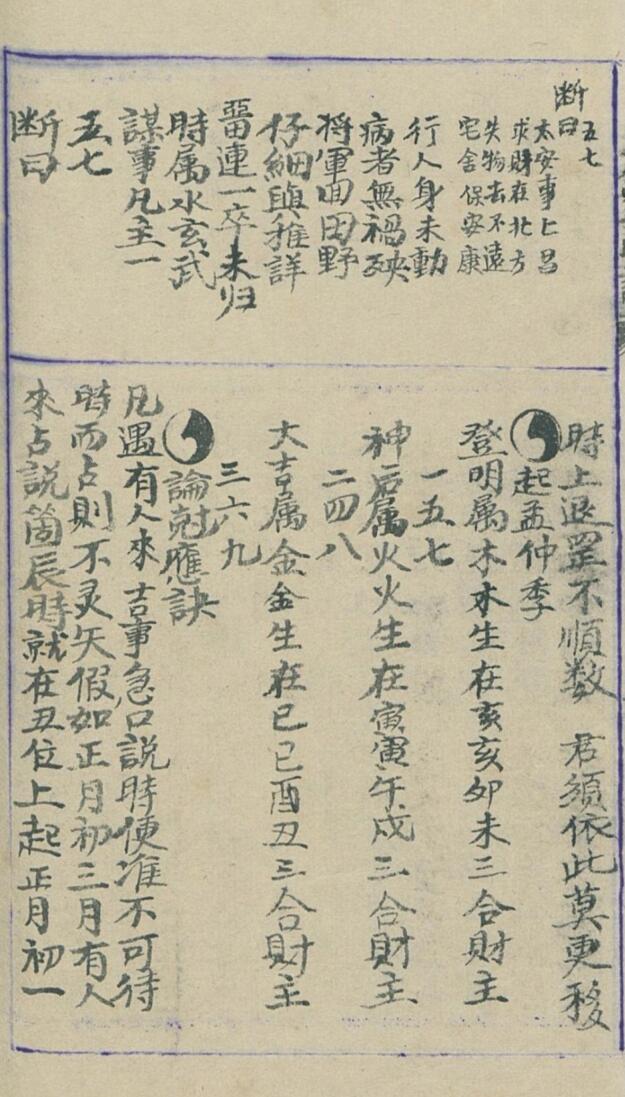 五七
断曰
太安事上昌
求財在北方
失物去不遠
宅舍保安康
行人身未動
病者無禍殃
将軍回田野
仔細與推詳
畱連一卒未归
時属水玄武
謀事凡主一
五七
断曰
時上退罡不順数 君須依此莫更移
起孟仲季
登明属木木生在亥亥卯未三合財主
一五七
神后属火火生在寅寅午戌三合財主
二四八
大吉属金金生在巳巳酉丑三合財主
三六九
論尅應訣
凡遇有人來吉事急口說時便准不可待
時而占則不灵矢假如正月初三月有人
來占說箇辰時就在丑位上起正月初一